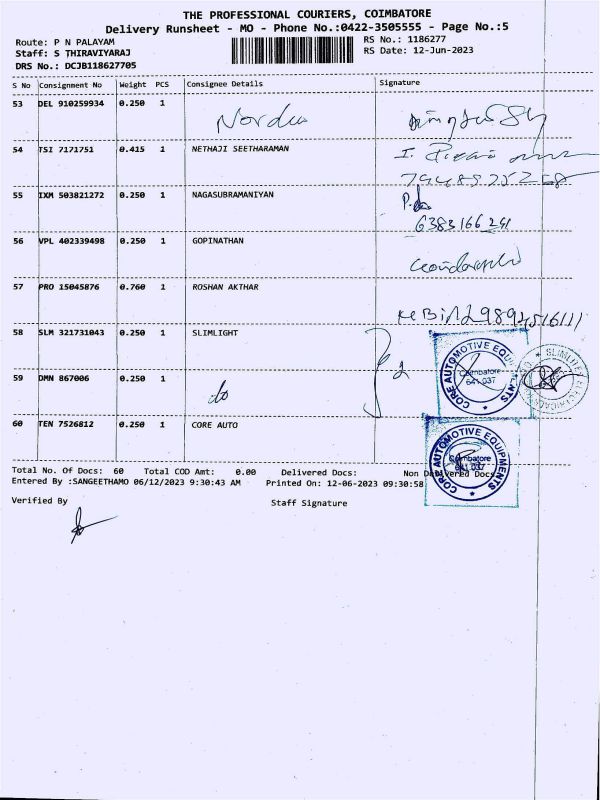 THE PROFESSIONAL COURIERS, COIMBATORE
Delivery Runsheet - MO - Phone No.:0422-3505555 - Page No.:5
Route: P N PALAYAM RS No.: 1186277
Staff: S THIRAVIYARAJ RS Date: 12-Jun-2023
DRS No.: DCJB118627705
S No Consignment No Weight PCS Consignee Details Signature
53 DEL 910259934 0.250 1
54 TSI 7171751 0.415 1 NETHAJI SEETHARAMAN
55 IXM 503821272 0.250 1 NAGASUBRAMANIYAN
6383166291
56 VPL 402339498 0.250 1 GOPINATHAN
57 PRO 15045876 0.760 1 ROSHAN AKTHAR
58 SLM 321731043 0.250 1 SLIMLIGHT
CORE AUTOMOTIVE EQUIPMENTS
Coimbatore
641 037
59 DMN 867006 0.250 1 do
60 TEN 7526812 0.250 1 CORE AUTO
CORE AUTOMOTIVE EQUIPMENTS
Coimbatore
641 037
Total No. Of Docs: 60 Total COD Amt: 0.00 Delivered Docs: Non Delivered Docs
Entered By :SANGEETHAMO 06/12/2023 9:30:43 AM Printed On: 12-06-2023 09:30:58
Verified By Staff Signature